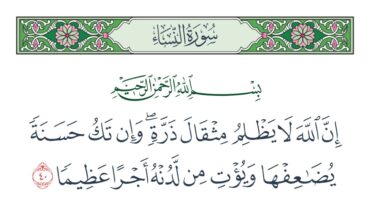 سُورَةُ النِّسَاءِ
بِسْمِ اللَّهِ الرَّحْمَٰنِ الرَّحِيمِ
إِنَّ ٱللَّهَ لَا يَظْلِمُ مِثْقَالَ ذَرَّةٍۖ وَإِن تَكُ حَسَنَةً
يُضَٰعِفْهَا وَيُؤْتِ مِن لَّدُنْهُ أَجْرًا عَظِيمًا ٤٠